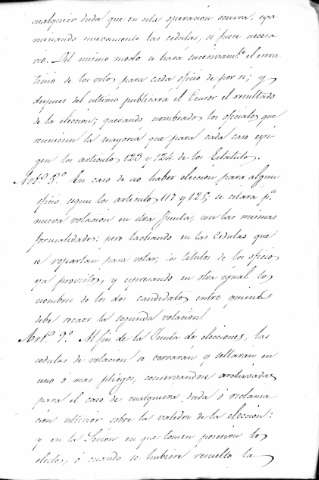 cualquier duda que en esta operacion ocurra, exa
minando nuevamente las cédulas, si fuere necesa
rio. Del mismo modo se hará sucesivamte. el escru
tinio de los votos para cada oficio de por si; y
despues del ultimo publicará el Censor el resultado
de la eleccion; quedando nombrados los oficiales que
reunieren la mayoria que para cada caso exi
gen los articulos 123 y 124 de los Estatutos.
Arto. 8o. En caso de no haber eleccion para algun
oficio segun los articulos 117 y 125, se citará pa.
nueva votacion en otra Junta, con las mismas
formalidades; pero tachando en las cédulas que
se repartan para votar, los titulos de los oficios
ya provistos, y expresando en otra igual los
nombres de los dos candidatos entre quienes
debe recaer la segunda votacion.
Arto. 9o. Al fin de la Junta de elecciones, las
cédulas de votacion se cerrarán y sellarán en
uno o mas pliegos, conservandose archivadas
para el caso de cualquiera duda ó reclama
cion ulterior sobre la validez de la eleccion:
y en la Sesion en que tomen posesion los
electos, ó cuando se hubiere resuelto la